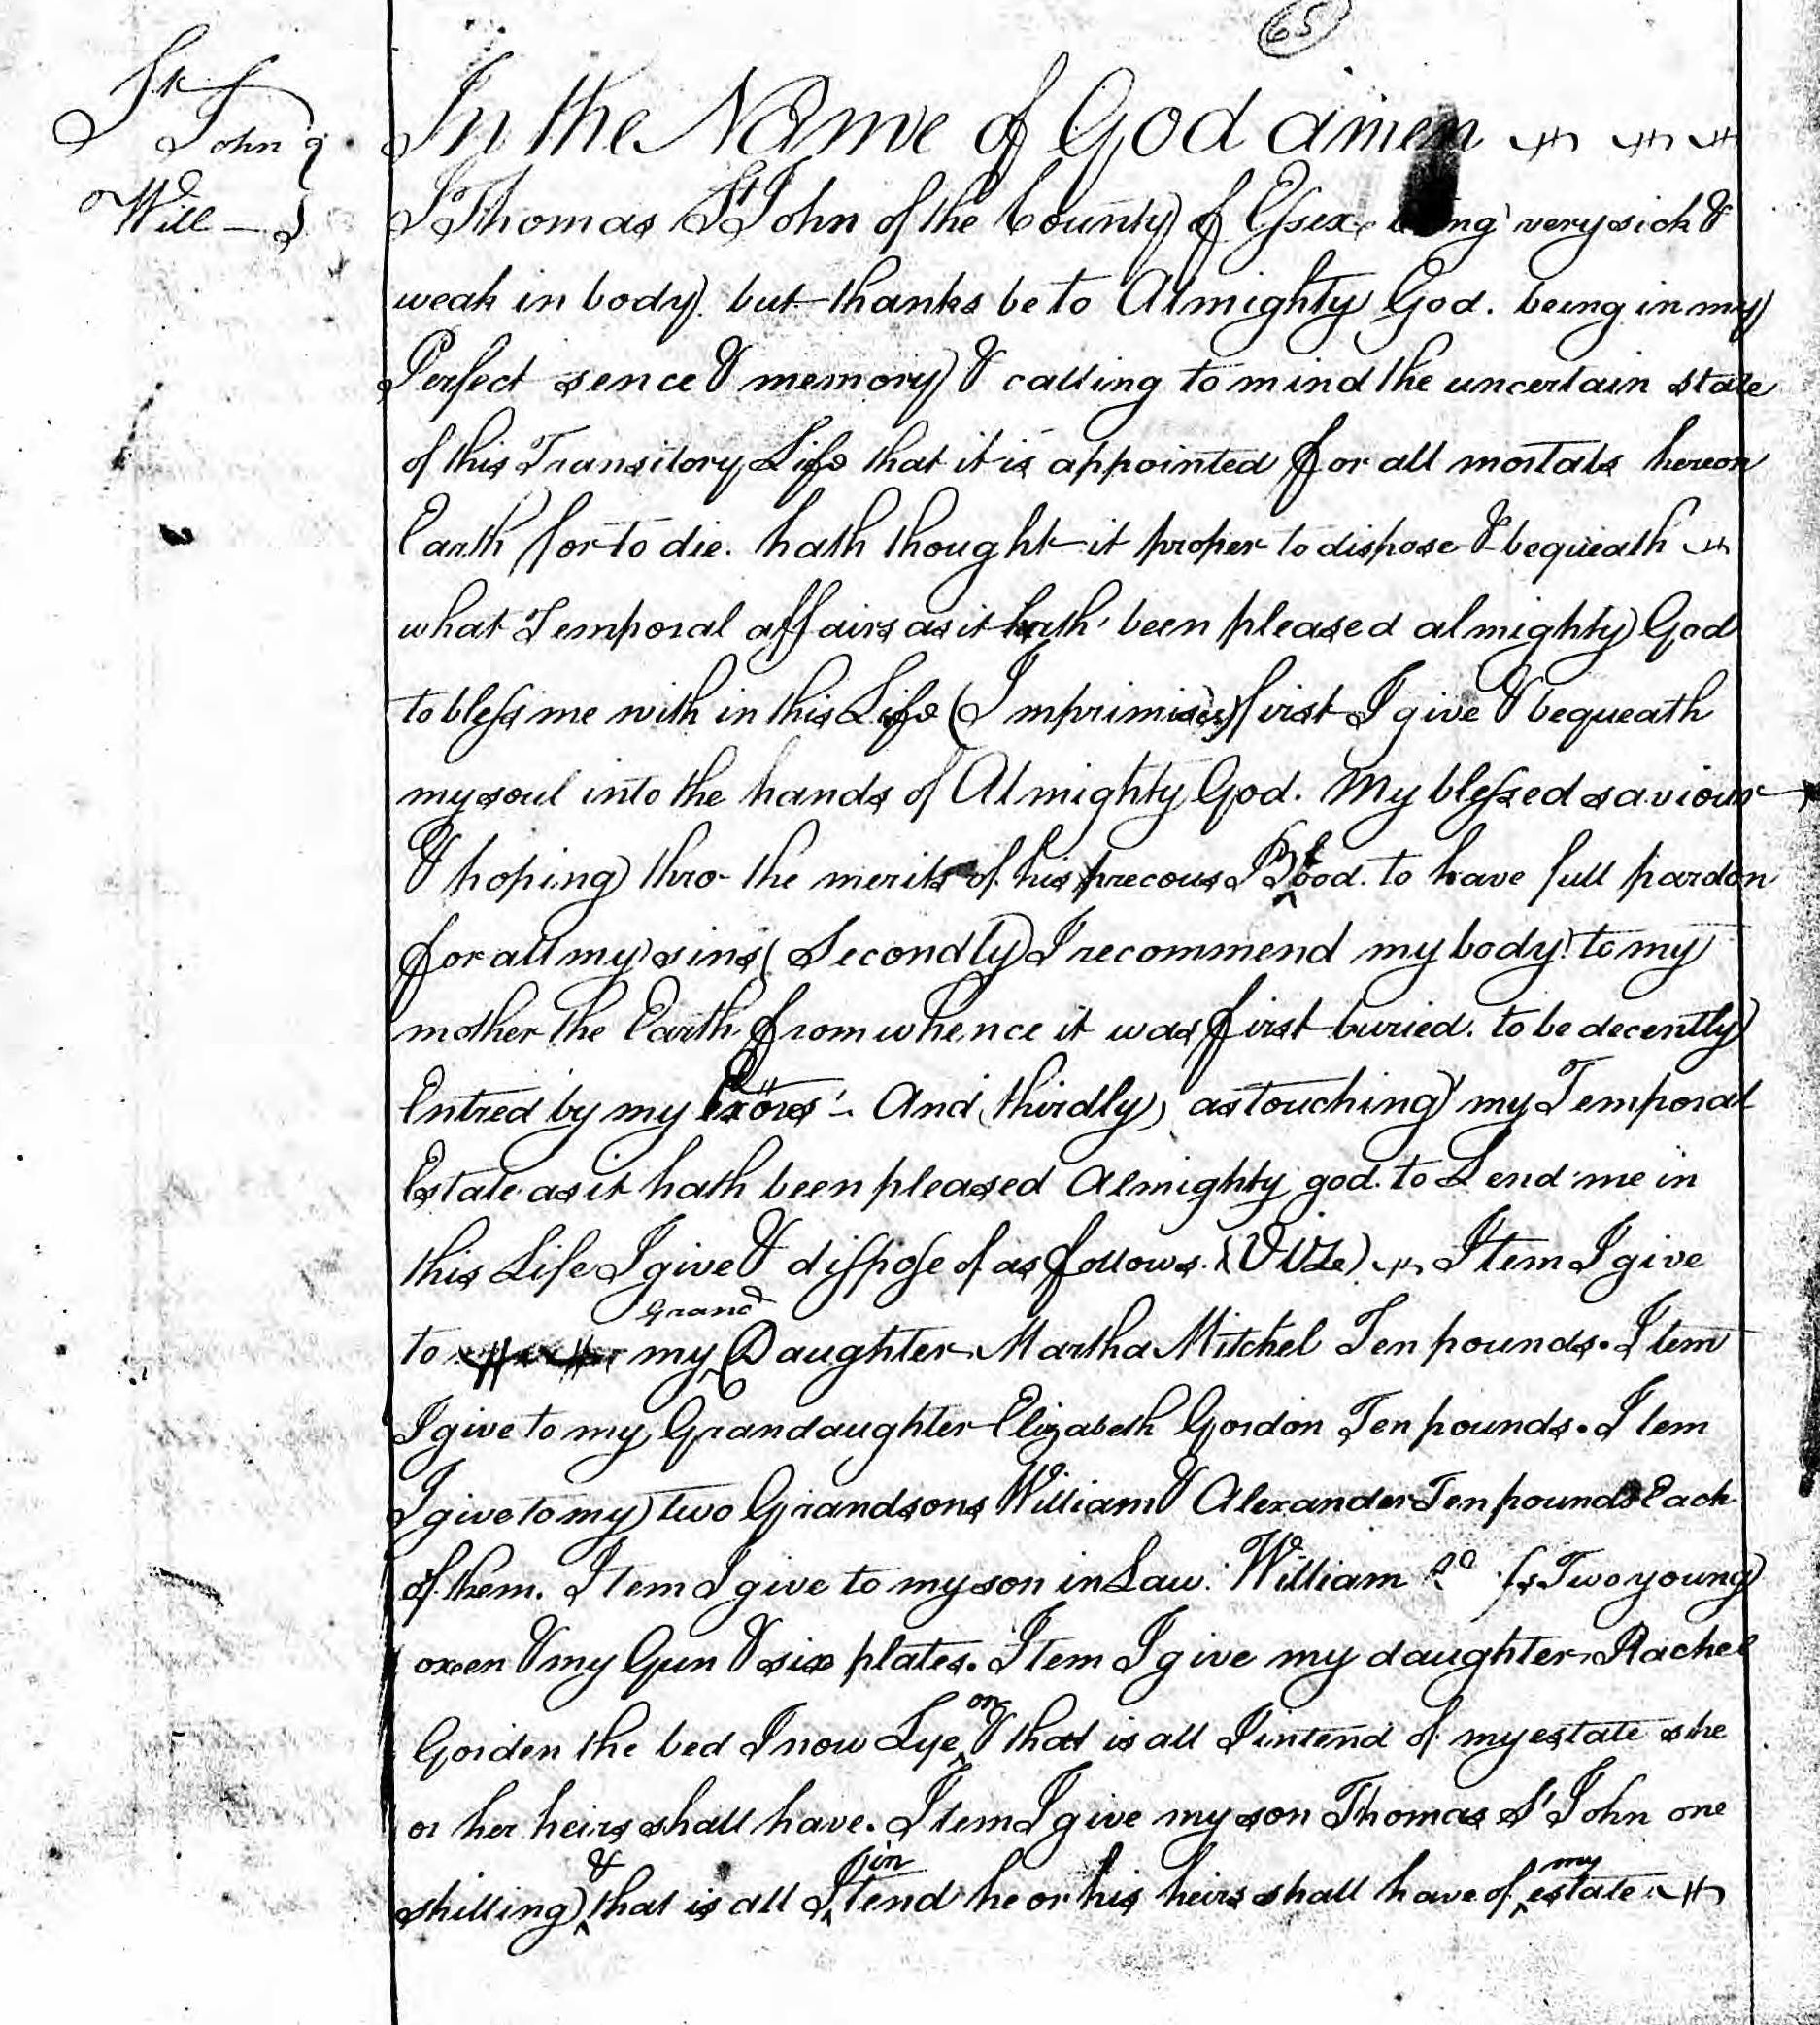 65
St
John's
Will
In the Name of God amen
I Thomas St John of the County of Essex being very sick &
weak in body. but thanks be to Almighty God. being in my
Perfect sence & memory & calling to mind the uncertain state
of this Transitory Life that it is appointed for all mortals hereon
Earth for to die. hath thought it proper to dispose & bequeath
what Temporal affairs as it hath been pleased almighty God
to bless me with in this Life (Imprimises) first I give & bequeath
my soul into the hands of Almighty God. My blessed saviour
& hoping thro the merits of his precous Blood. to have full pardon
for all my sins (Secondly) I recommend my body to my
mother the Earth from whence it was first buried. to be decently
Entred by my Exors - And (thirdly) as touching my Temporal
Estate as it hath been pleased Almighty god. to Lend me in
this Life I give & disspose of as follows. (VIZe) Item I give
to my Grand Daughter Martha Mitchel Ten pounds. Item
I give to my Grandaughter Elizabeth Gordon Ten pounds. Item
I give to my two Grandsons William & Alexander Ten pounds Each
of them. Item I give to my son in Law. William Two young
oxen & my Gun & six plates. Item I give my daughter Rachel
Gorden the bed I now Lye on & that is all I intend of my estate she
or her heirs shall have. Item I give my son Thomas St John one
shilling & that is all I intend he or his heirs shall have of my estate